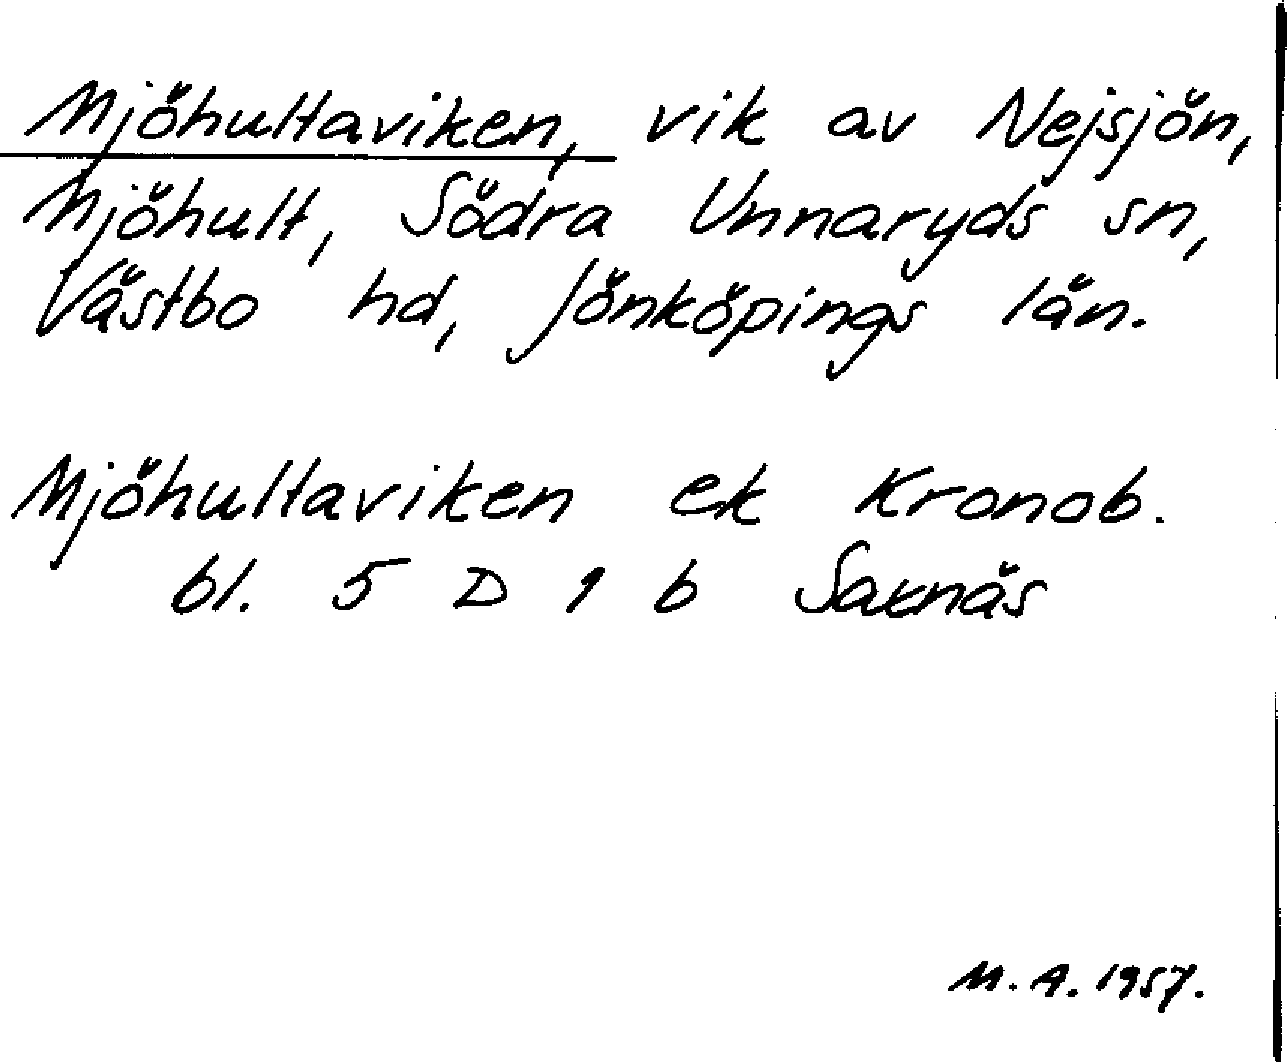 Mjöhultaviken, vik av Nejsjön,
Mjöhult, Södra Unnaryds sn,
Västbo hd, Jönköpings län.
Mjöhultaviken ek Kronob.
bl. 5 D 1 b Saxnäs
M. A. 1957.